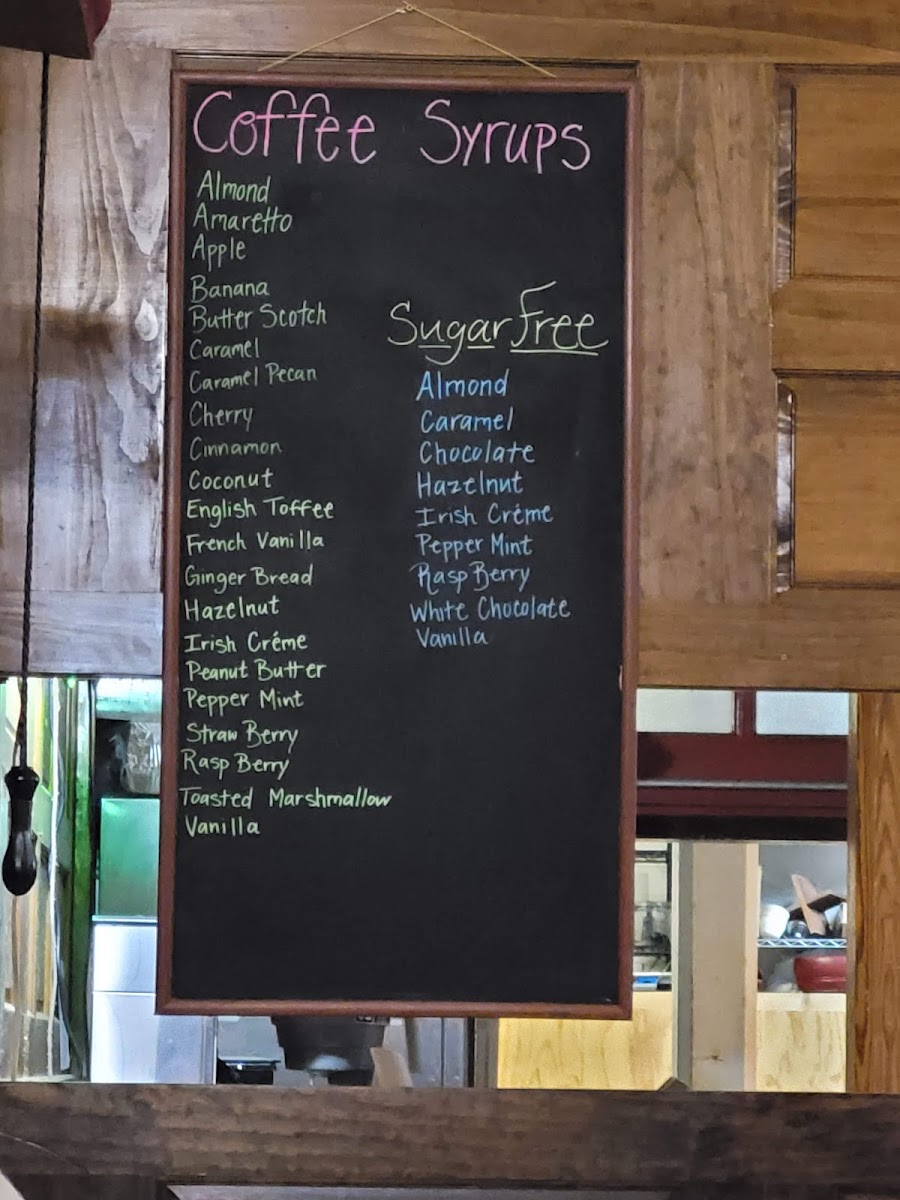 Coffee Syrups
Almond
Amaretto
Apple
Banana
Butter Scotch
Caramel
Caramel Pecan
Cherry
Cinnamon
Coconut
English Toffee
French Vanilla
Ginger Bread
Hazelnut
Irish Créme
Peanut Butter
Pepper Mint
Straw Berry
Rasp Berry
Toasted Marshmallow
Vanilla
Sugar Free
Almond
Caramel
Chocolate
Hazelnut
Irish Créme
Pepper Mint
Rasp Berry
White Chocolate
Vanilla